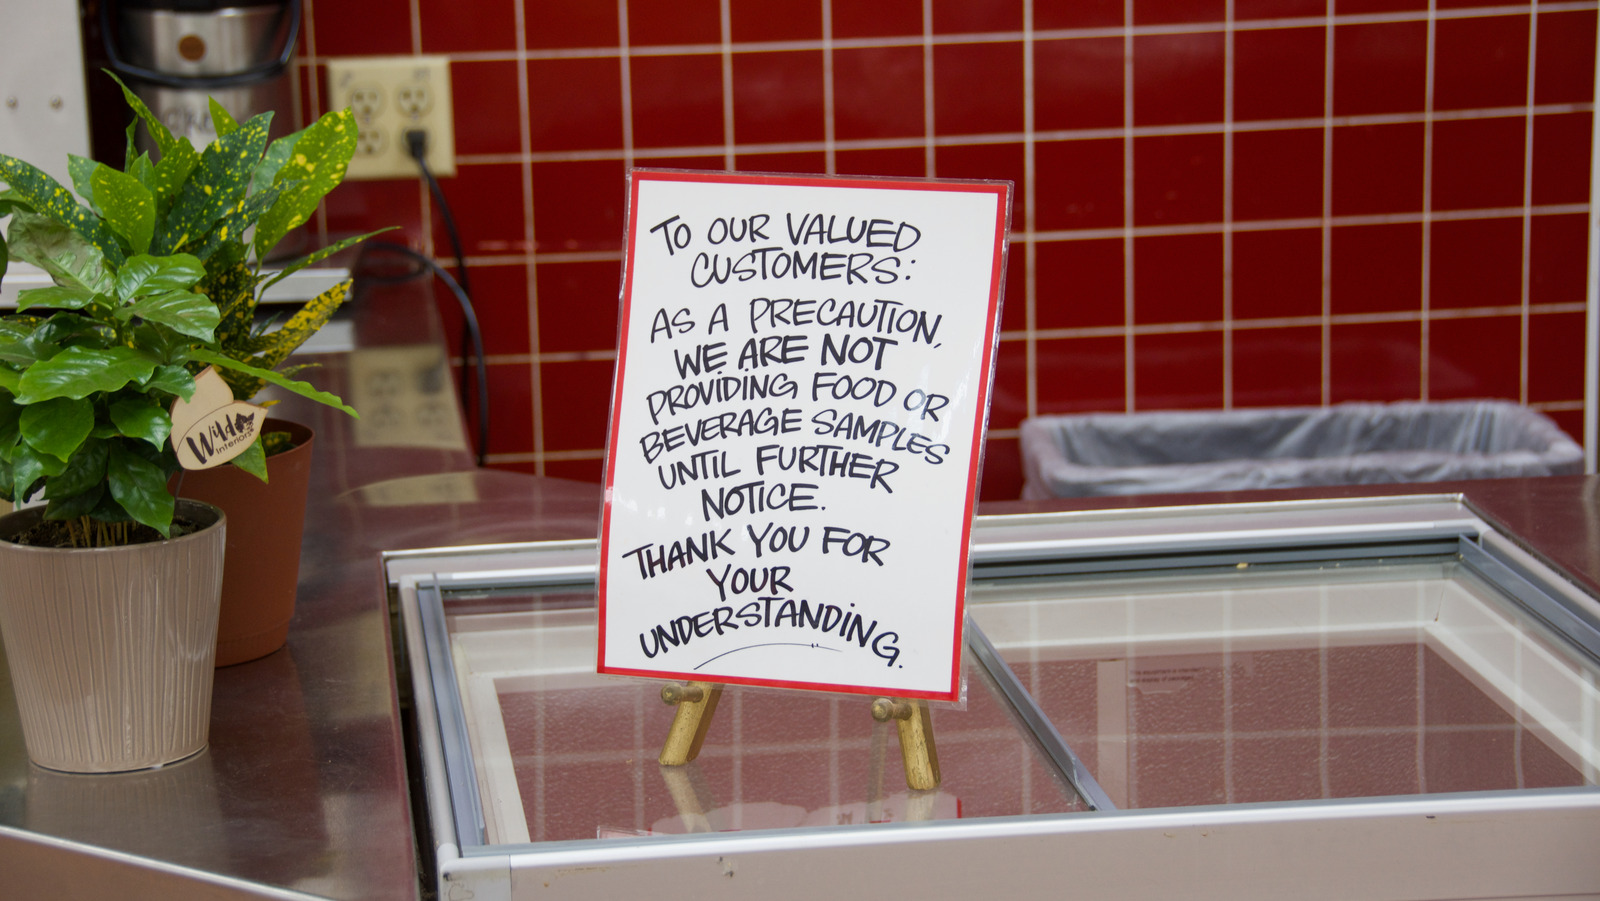 TO OUR VALUED
CUSTOMERS:
AS A PRECAUTION,
WE ARE NOT
PROVIDING FOOD OR
BEVERAGE SAMPLES
UNTIL FURTHER
NOTICE.
THANK YOU FOR
YOUR
UNDERSTANDING.
Wild
Interiors